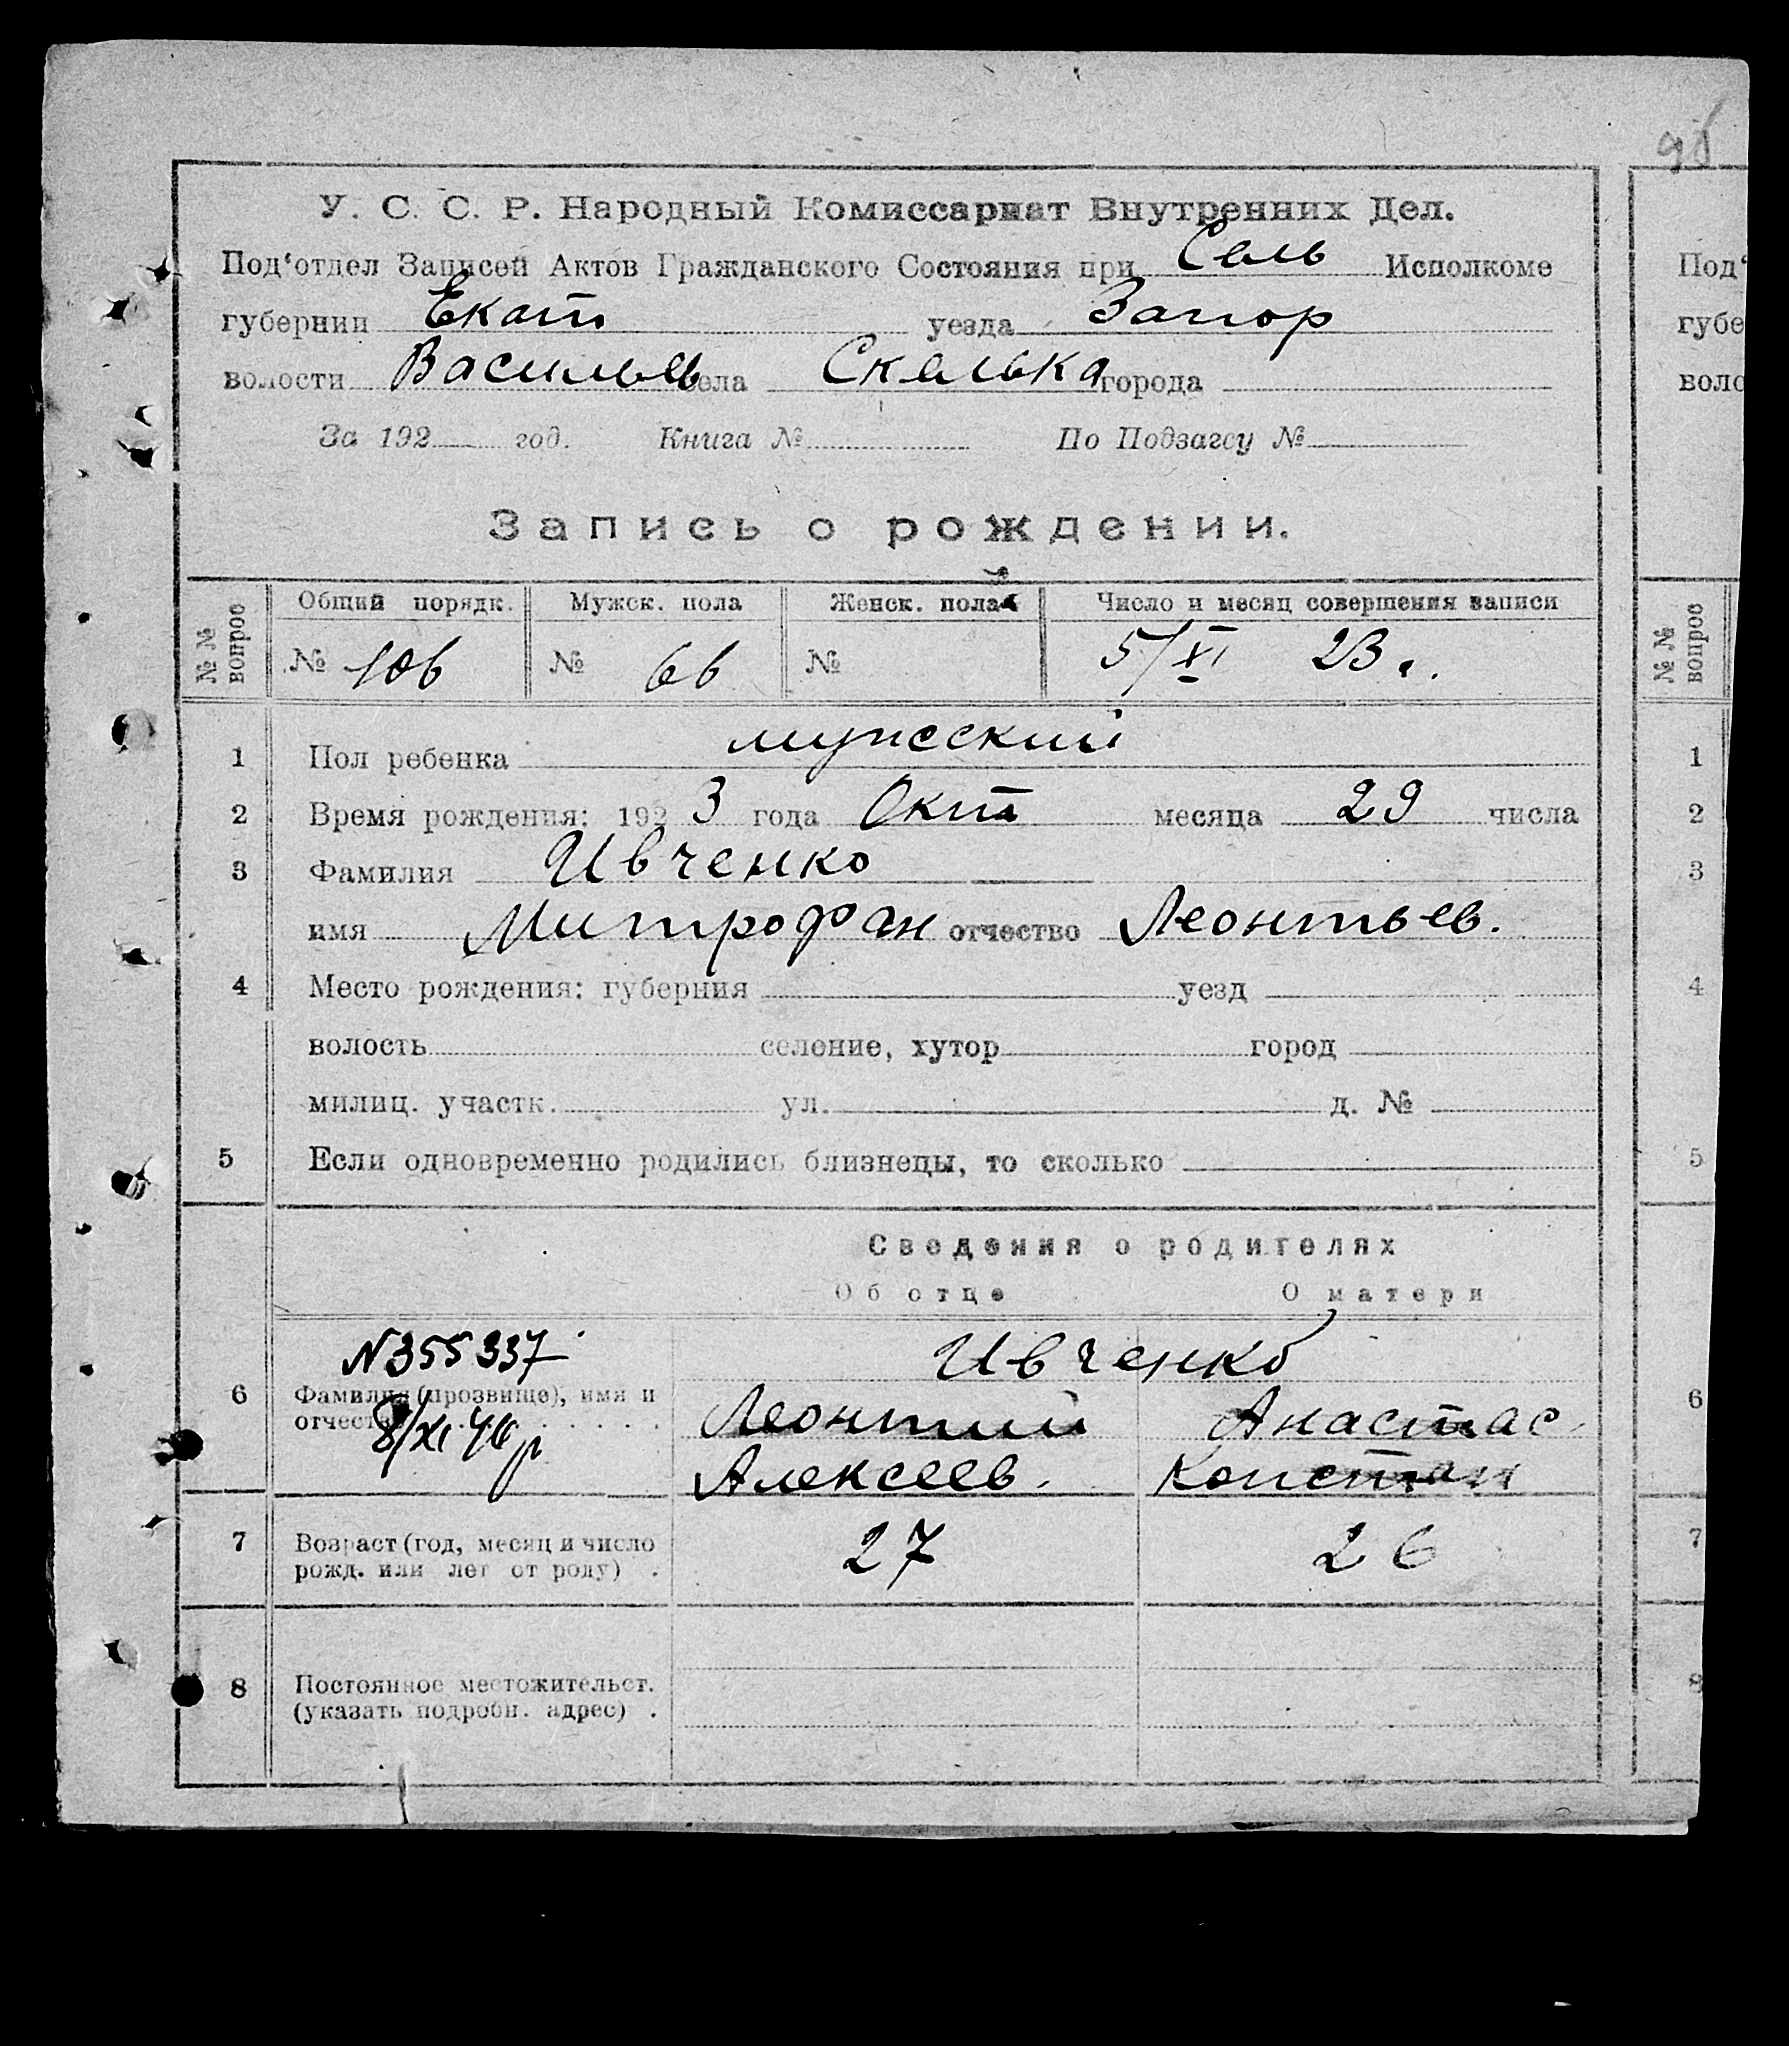 У. С. С. Р. Народный Комиссариат Внутренних Дел.
Под'отдел Записей Актов Гражданского Состояния при Сель Исполкоме
губернии Екат уезда Запор
волости Васильев села Скелька города
За 192 год. Книга № По Подзагсу №
Запись о рождении.
№ № вопрос Общий порядк. Мужск. пола Женск. пола Число и месяц совершения записи
№ 106 № 66 № 5/XI 23 г.
1 Пол ребенка мужеский
2 Время рождения: 1923 года Окт месяца 29 числа
3 Фамилия Ивченко
имя Митрофан отчество Леонтьев.
4 Место рождения: губерния уезд
волость селение, хутор город
милиц. участк. ул. д. №
5 Если одновременно родились близнецы, то сколько
Сведения о родителях
Об отце О матери
N 355337 Ивченко
6 Фамилия (прозвище), имя и отчество Леонтий Анастас
8/XI 46 р Алексеев. Констан
7 Возраст (год, месяц и число рожд. или лет от роду) 27 26
8 Постоянное местожительст. (указать подробн. адрес)
Под'
губе
воло
№ № вопрос
1
2
3
4
5
6
7
8